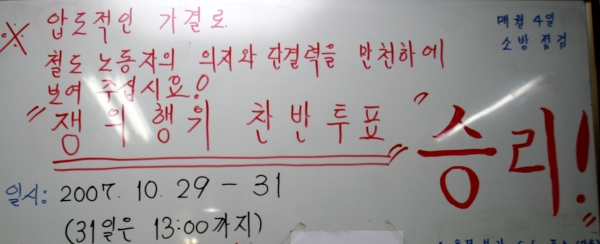 ※ 압도적인 가결로
철도 노동자의 의지와 단결력을 만천하에
보여 주십시요!
"쟁의행위 찬반투표"
"승리!
매월 4일
소방 점검
일시: 2007. 10. 29 - 31
(31일은 13:00까지)